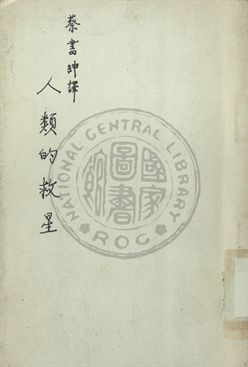 蔡書紳譯
人類的救星
NATIONAL CENTRAL LIBRARY
國家圖書館
ROC